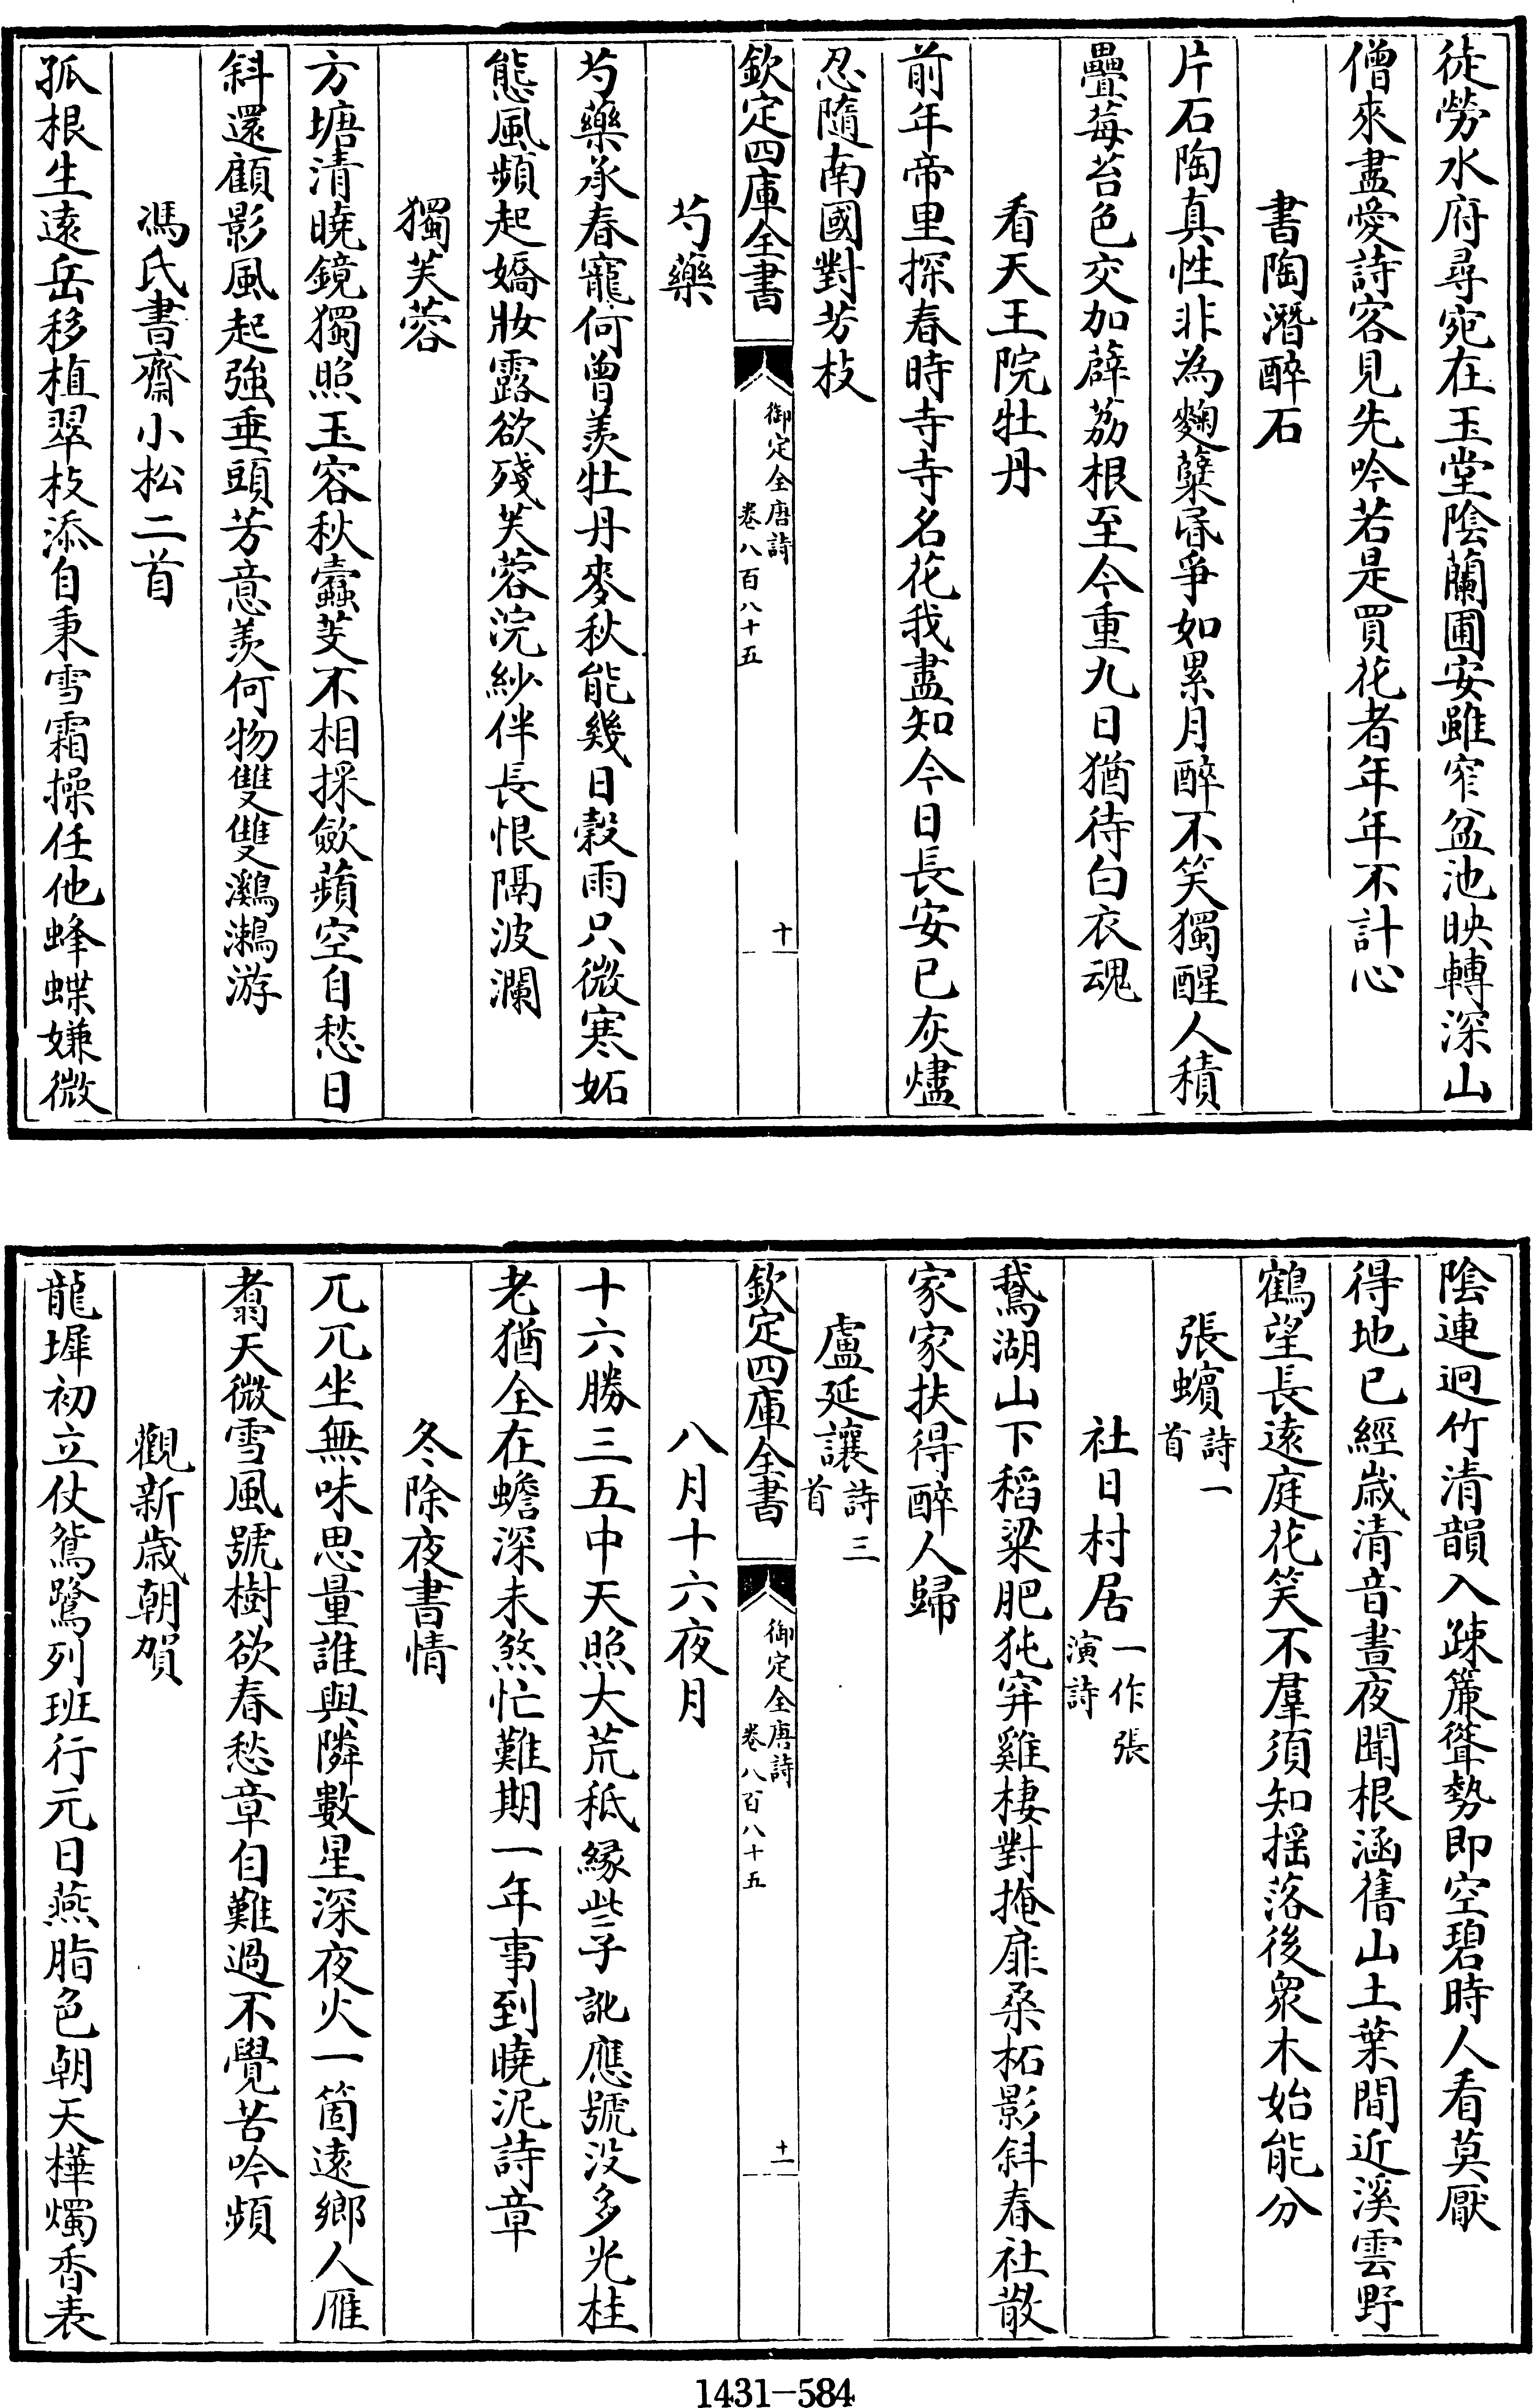 徒勞水府尋宛在玉堂陰蘭圃安雖窄盆池映轉深山
僧來盡愛詩客見先吟若是買花者年年不計心
書陶潛醉石
片石陶真性非為麴糵昏爭如累月醉不笑獨醒人積
疊莓苔色交加薜荔根至今重九日猶待白衣魂
看天王院牡丹
前年帝里探春時寺寺名花我盡知今日長安已灰燼
忍隨南國對芳枝
欽定四庫全書
御定全唐詩
卷八百八十五
十
芍藥
芍藥承春寵何曾羨牡丹麥秋能幾日穀雨只微寒妬
態風頻起嬌妝露欲殘芙蓉浣紗伴長恨隔波瀾
獨芙蓉
方塘清曉鏡獨照玉容秋蠹芰不相採歛蘋空自愁日
斜還顧影風起強垂頭芳意羨何物雙雙鸂鶒游
馮氏書齋小松二首
孤根生遠岳移植翠枝添自秉雪霜操任他蜂蝶嫌微
陰連迥竹清韻入疎簾聳勢即空碧時人看莫厭
得地已經歲清音晝夜聞根涵舊山土葉間近溪雲野
鶴望長遠庭花笑不羣須知揺落後衆木始能分
張蠙詩一首
社日村居一作張演詩
鵞湖山下稻粱肥㹠穽雞棲對掩扉桑柘影斜春社散
家家扶得醉人歸
盧延讓詩三首
欽定四庫全書
御定全唐詩
卷八百八十五
十一
八月十六夜月
十六勝三五中天照大荒秪緣些子訛應號没多光桂
老猶全在蟾深未煞忙難期一年事到曉泥詩章
冬除夜書情
兀兀坐無味思量誰與隣數星深夜火一箇遠鄉人雁
翥天微雪風號樹欲春愁章自難過不覺苦吟頻
觀新歲朝賀
龍墀初立仗鴛鷺列班行元日燕脂色朝天樺燭香表
1431-584